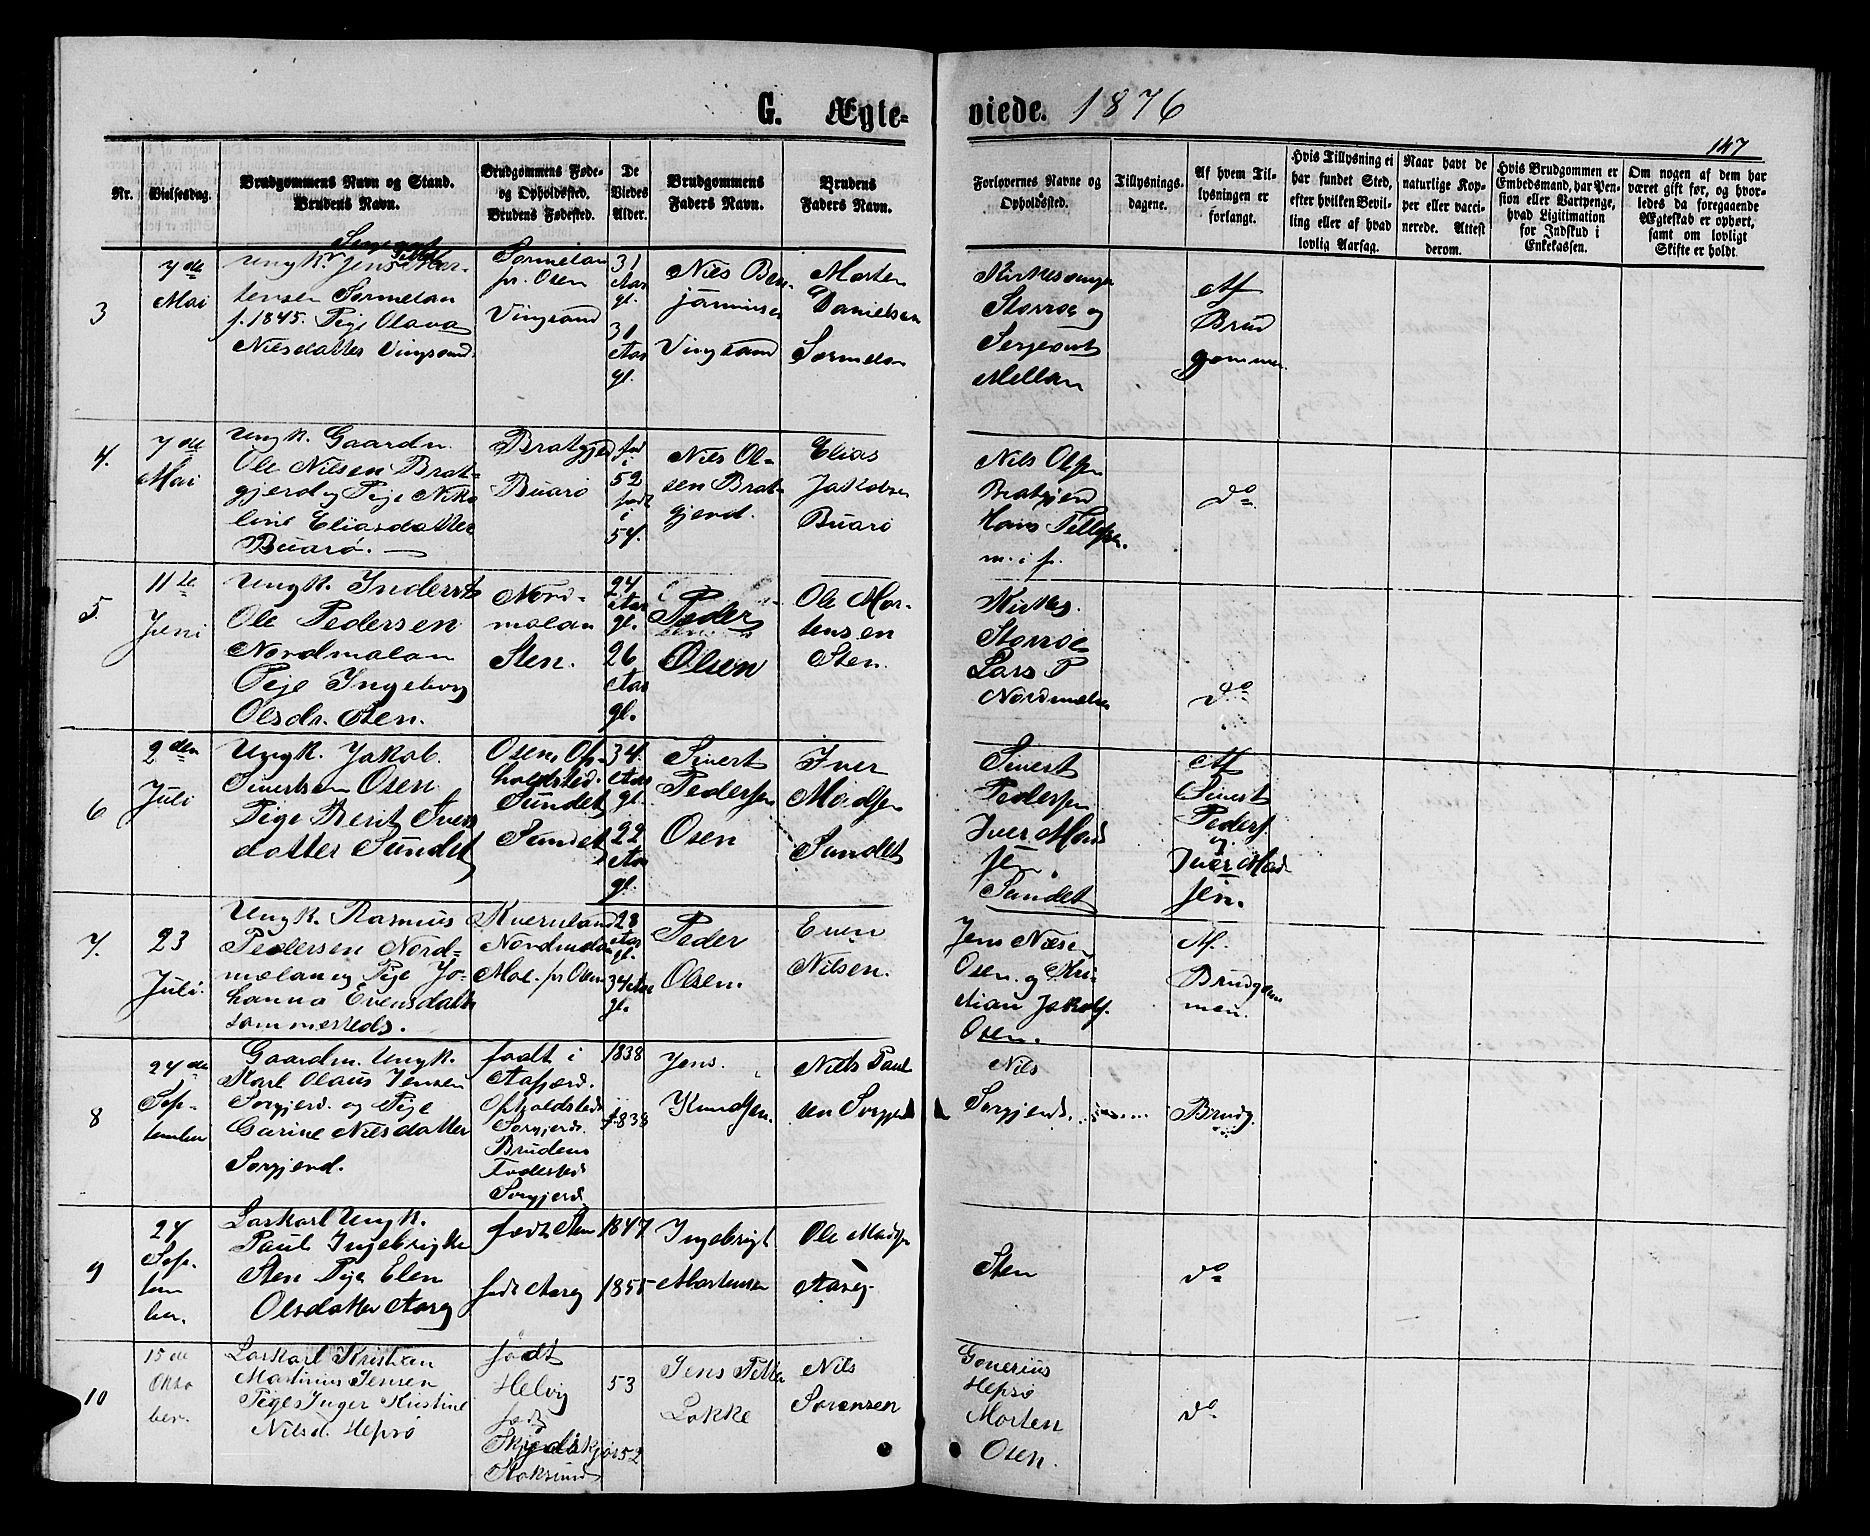 G. Ægte-
viede. 1876
147
Nr.
Vielsesdag.
Brudgommens Navn og Stand.
Brudens Navn.
Brudgommens Føde-
og Opholdssted.
Brudens Fødested.
De
Viedes
Alder.
Brudgommens
Faders Navn.
Brudens
Faders Navn.
Forlovernes Navne og
Opholdssted.
Tillysnings-
dagene.
Af hvem Til-
lysningen er
forlangt.
Hvis Tillysning ei
har fundet Sted,
efter hvilken Bevil-
ling eller af hvad
lovlig Aarsag.
Naar havt de
naturlige Kop-
per eller vacci-
nerede. Attest
derom.
Hvis Brudgommen er
Embedsmand, har Pen-
sion eller Vartpenge,
hvad Legitimation
for Indskud i
Enkekassen.
Om nogen af dem har
været gift før, og hvor-
ledes da foregaaende
Ægteskab er ophørt,
samt om lovligt
Skifte er holdt.
3
7de
Mai
Sergeant
Ungk. Jens Mor-
tensen Sørmelan
f. 1845. Pige Olava
Nilsdatter Vingsand.
Sørmelan
pr. Osen
Vingsand
31
Aar
gl.
31
Aar
gl.
Nils Ben-
jaminsen
Vingsand
Morten
Danielsen
Sørmelan
Kirkesanger
Størroe og
Sergeant
Mellan
Af
Brud
gommen
4.
7de
Mai
Ungk. Gaardm.
Ole Nilsen Brat-
gjerd og Pige Niko
line Eliasdatter
Buarø.
Bratgjerd
Buarø
fød
i
52
født
i
54.
Nils Ol-
sen Brat-
gjerd.
Elias
Jakobsen
Buarø
Nils Olsen
Bratgjerd
Hans Tillefsen
m. i p.
do
5.
11te
Juni
Ungk. Inderst
Ole Pedersen
Nordmelan
Pige Ingeborg
Olsdr. Sten.
Nord-
melan
Sten.
24
Aar
gl.
26
Aar
gl.
Peder
Olsen
Ole Mor-
tensen
Sten.
Kirkes.
Størroe
Lars P
Nordmelan
do
6
2den
Juli
Ungk. Jakob
Sivertsen Osen
Pige Berit Ivers
datter Sundet
Osen, Op-
holdssted.
Sundet
Sundet
34.
Aar
gl.
22
Aar
gl.
Sivert
Pedersen
Osen
Iver
Madsen
Sundet
Sivert
Pedersen
Iver Mad
sen,
Sundet
Af
Sivert
Peders
og
Iver Mad
sen.
7.
23
Juli.
Ungk. Rasmus
Pedersen Nord-
melan og Pige Jo-
hanna Evensdatter
sammesteds.
Kvernland
Nordmelan
Moe. pr Osen
28
Aar
gl.
34 Aar
gl.
Peder
Olsen.
Even
Nilsen.
Jens Næsse
Osen. og Kri-
stian Jakobs.
Osen.
Af.
Brudgom
men.
8
24de
Sep-
tember
Gaardm. Ungk.
Karl Olaus Jensen
Sørgjerd. og Pige
Garine Nilsdatter
Sørgjerd.
født i
Aafjord.
Opholdsted
Sørgjerd.
Brudens
Fødested
Sørgjerd
1838
1838
Jens
Knudsen.
Nils Paul
sen Sørgjerd
Nils
Sørgjerd.
Brudg.
9
24
Sep-
tem
ber.
Løskarl Ungk.
Paul Ingebrigts
Sten Pige Elen
Olsdatter Aarg
født Sten
født Aarg
1847
1855
Ingebrigt
Mortensen
Ole Madsen
Aarg.
Sten
do
10
15de
Okto
ber.
Løskarl Kristian
Martinius Jensen
Pige Inger Kristine
Nilsd. Hepsø
født
Helvig
født
Skjærvøkjør
Stoksund
53
52
Jens Petter
Løkke
Nils
Sørensen
Gonerius
Hepsø
Morten
Osen.
do